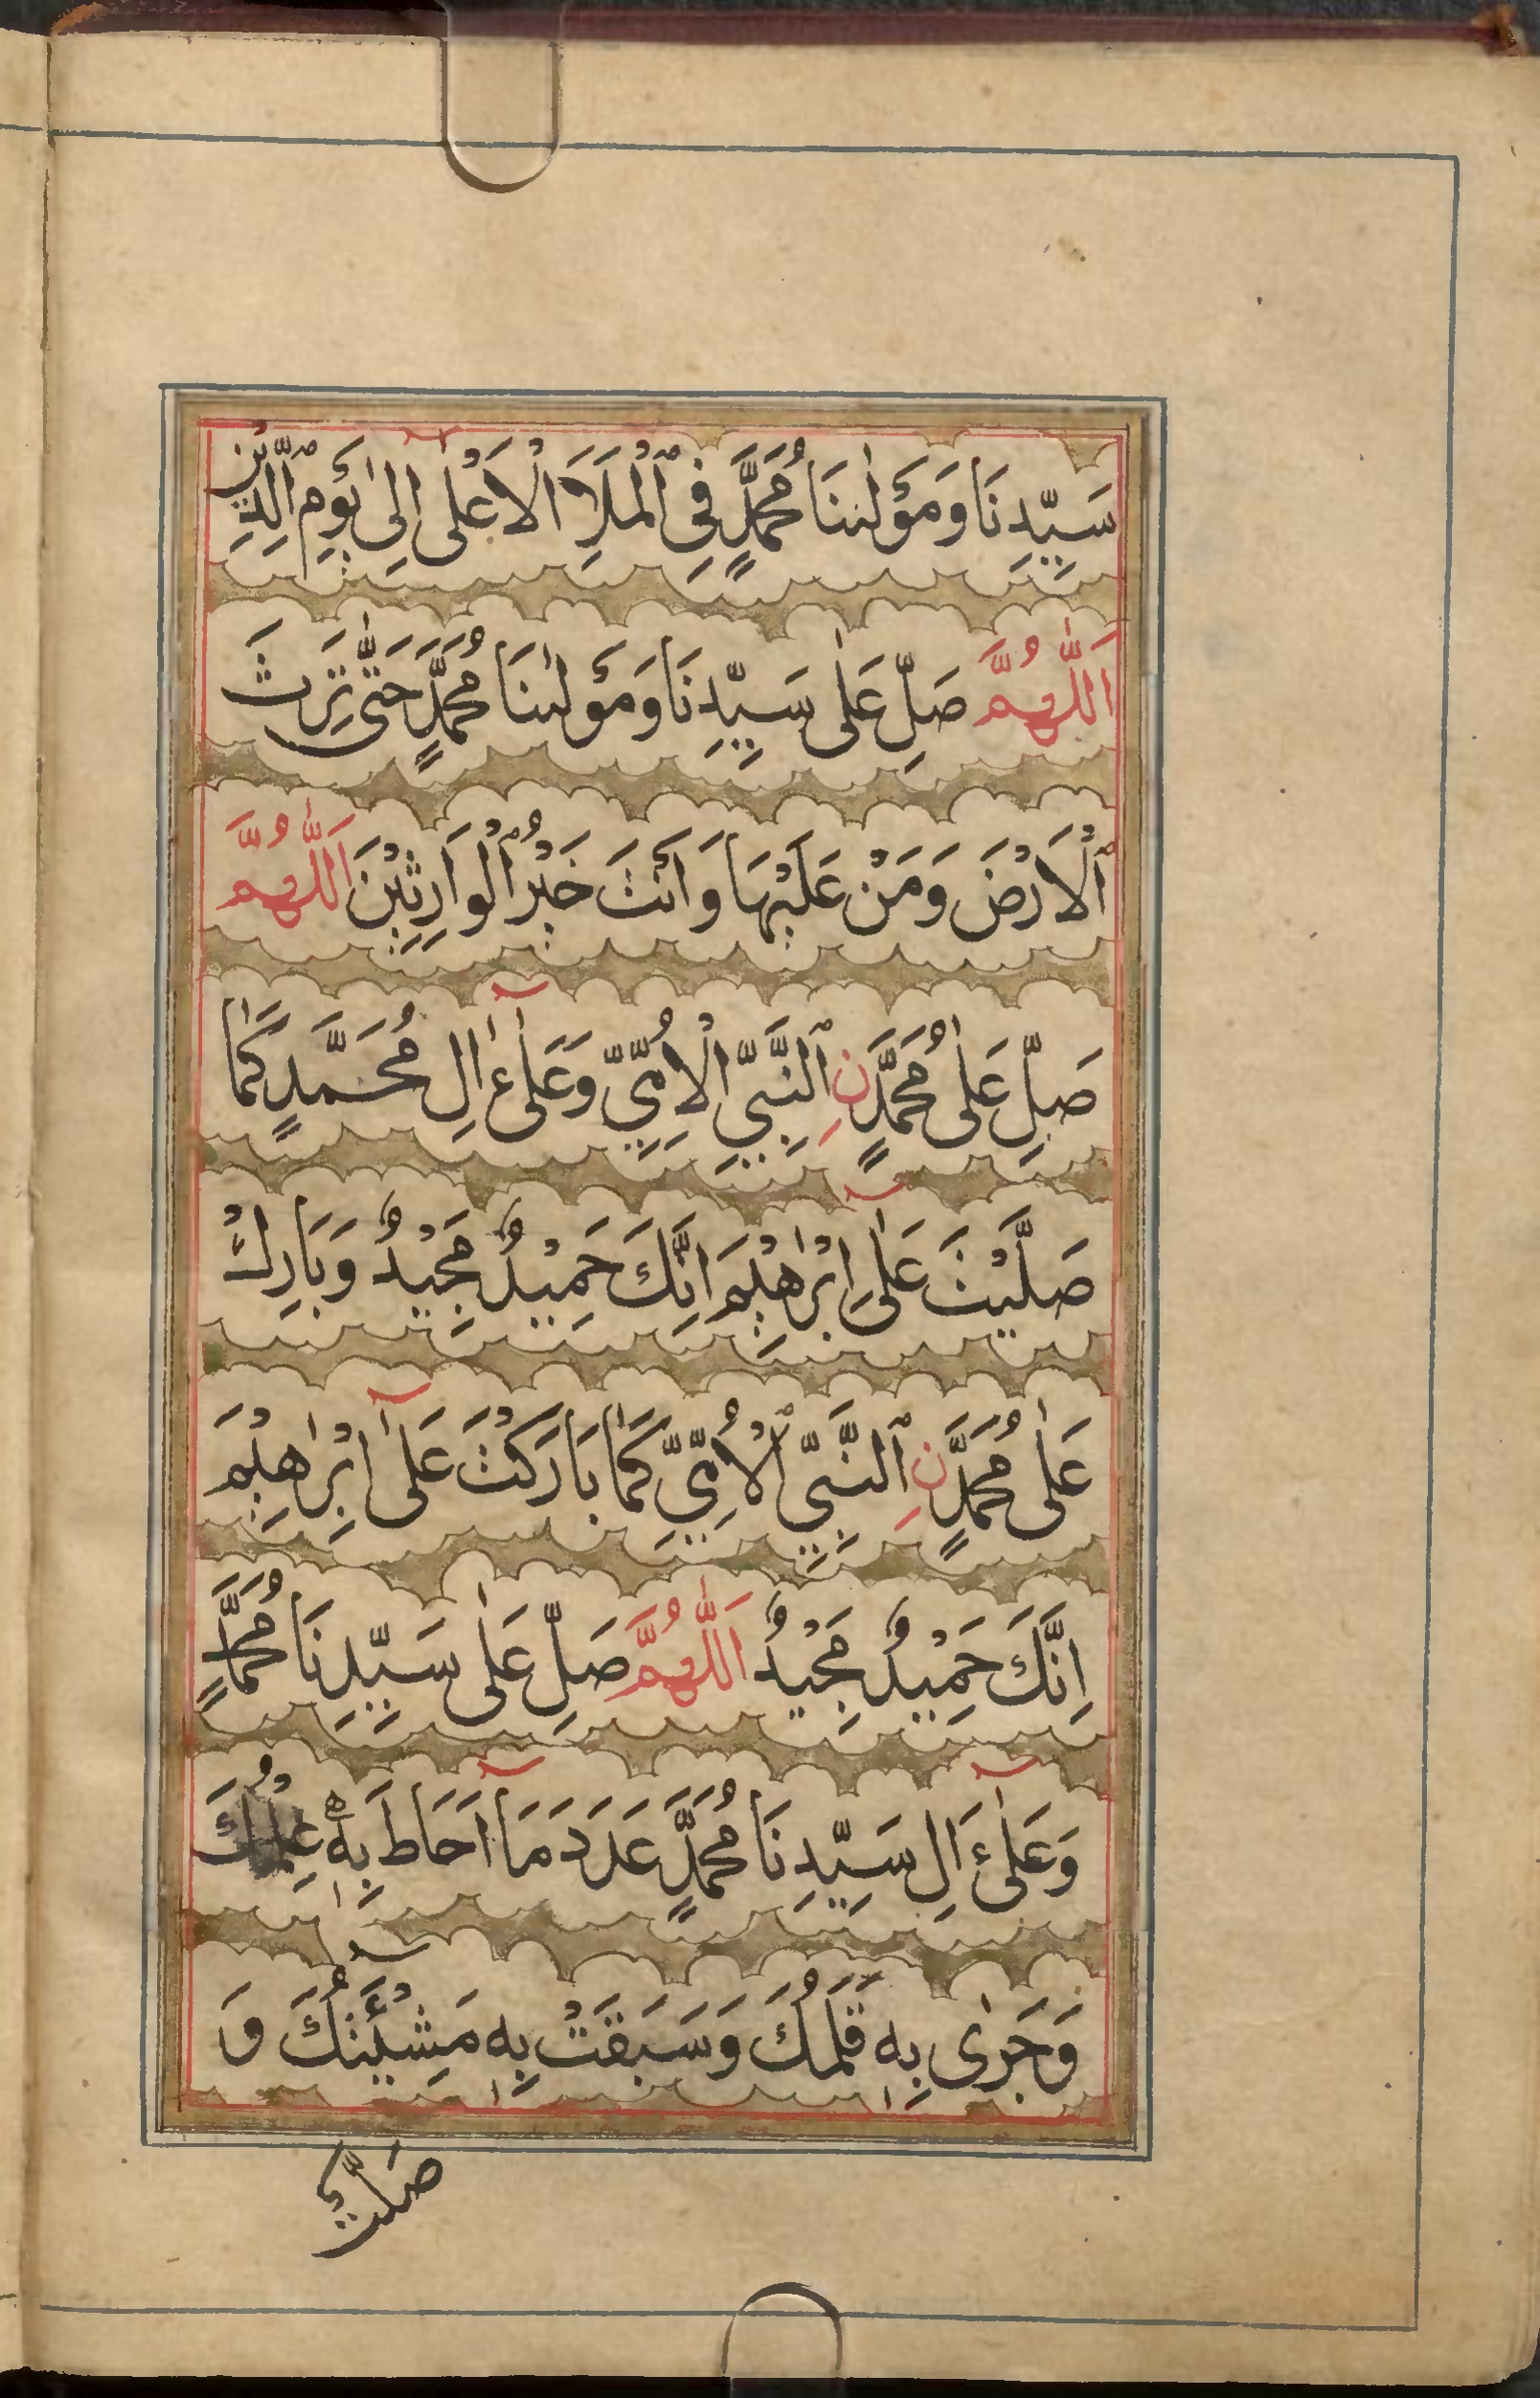 سَيِّدِنَا وَمَوْلٰىنَا مُحَمَّدٍ فِى ٱلْمَلَاَ الْاَعْلٰى اِلٰى يَوْمِ ٱلدِّيْنِ
اَللّٰهُمَّ صَلِّ عَلٰى سَيِّدِنَا وَمَوْلٰىنَا مُحَمَّدٍ حَتّٰى تَرِثَ
ٱلْاَرْضَ وَمَنْ عَلَيْهَا وَاَنْتَ خَيْرُ ٱلْوَارِثِيْنَ اَللّٰهُمَّ
صَلِّ عَلٰى مُحَمَّدٍ نِ ٱلنَّبِىِّ الْاُمِّىِّ وَعَلٰىٓ ءَالِ مُحَمَّدٍ كَمَا
صَلَّيْتَ عَلٰىٓ اِبْرٰهِيْمَ اِنَّكَ حَمِيْدٌ مَجِيْدٌ وَبَارِكْ
عَلٰى مُحَمَّدٍ نِ ٱلنَّبِىِّ ٱلْاُمِّىِّ كَمَا بَارَكْتَ عَلٰىٓ اِبْرٰهِيْمَ
اِنَّكَ حَمِيْدٌ مَجِيْدٌ اَللّٰهُمَّ صَلِّ عَلٰى سَيِّدِنَا مُحَمَّدٍ
وَعَلٰىٓ ءَالِ سَيِّدِنَا مُحَمَّدٍ عَدَدَ مَآ اَحَاطَ بِهٖ عِلْمُكَ
وَجَرٰى بِهٖ قَلَمُكَ وَسَبَقَتْ بِهٖ مَشِيْٓئَتُكَ وَ
صَلَّتْ